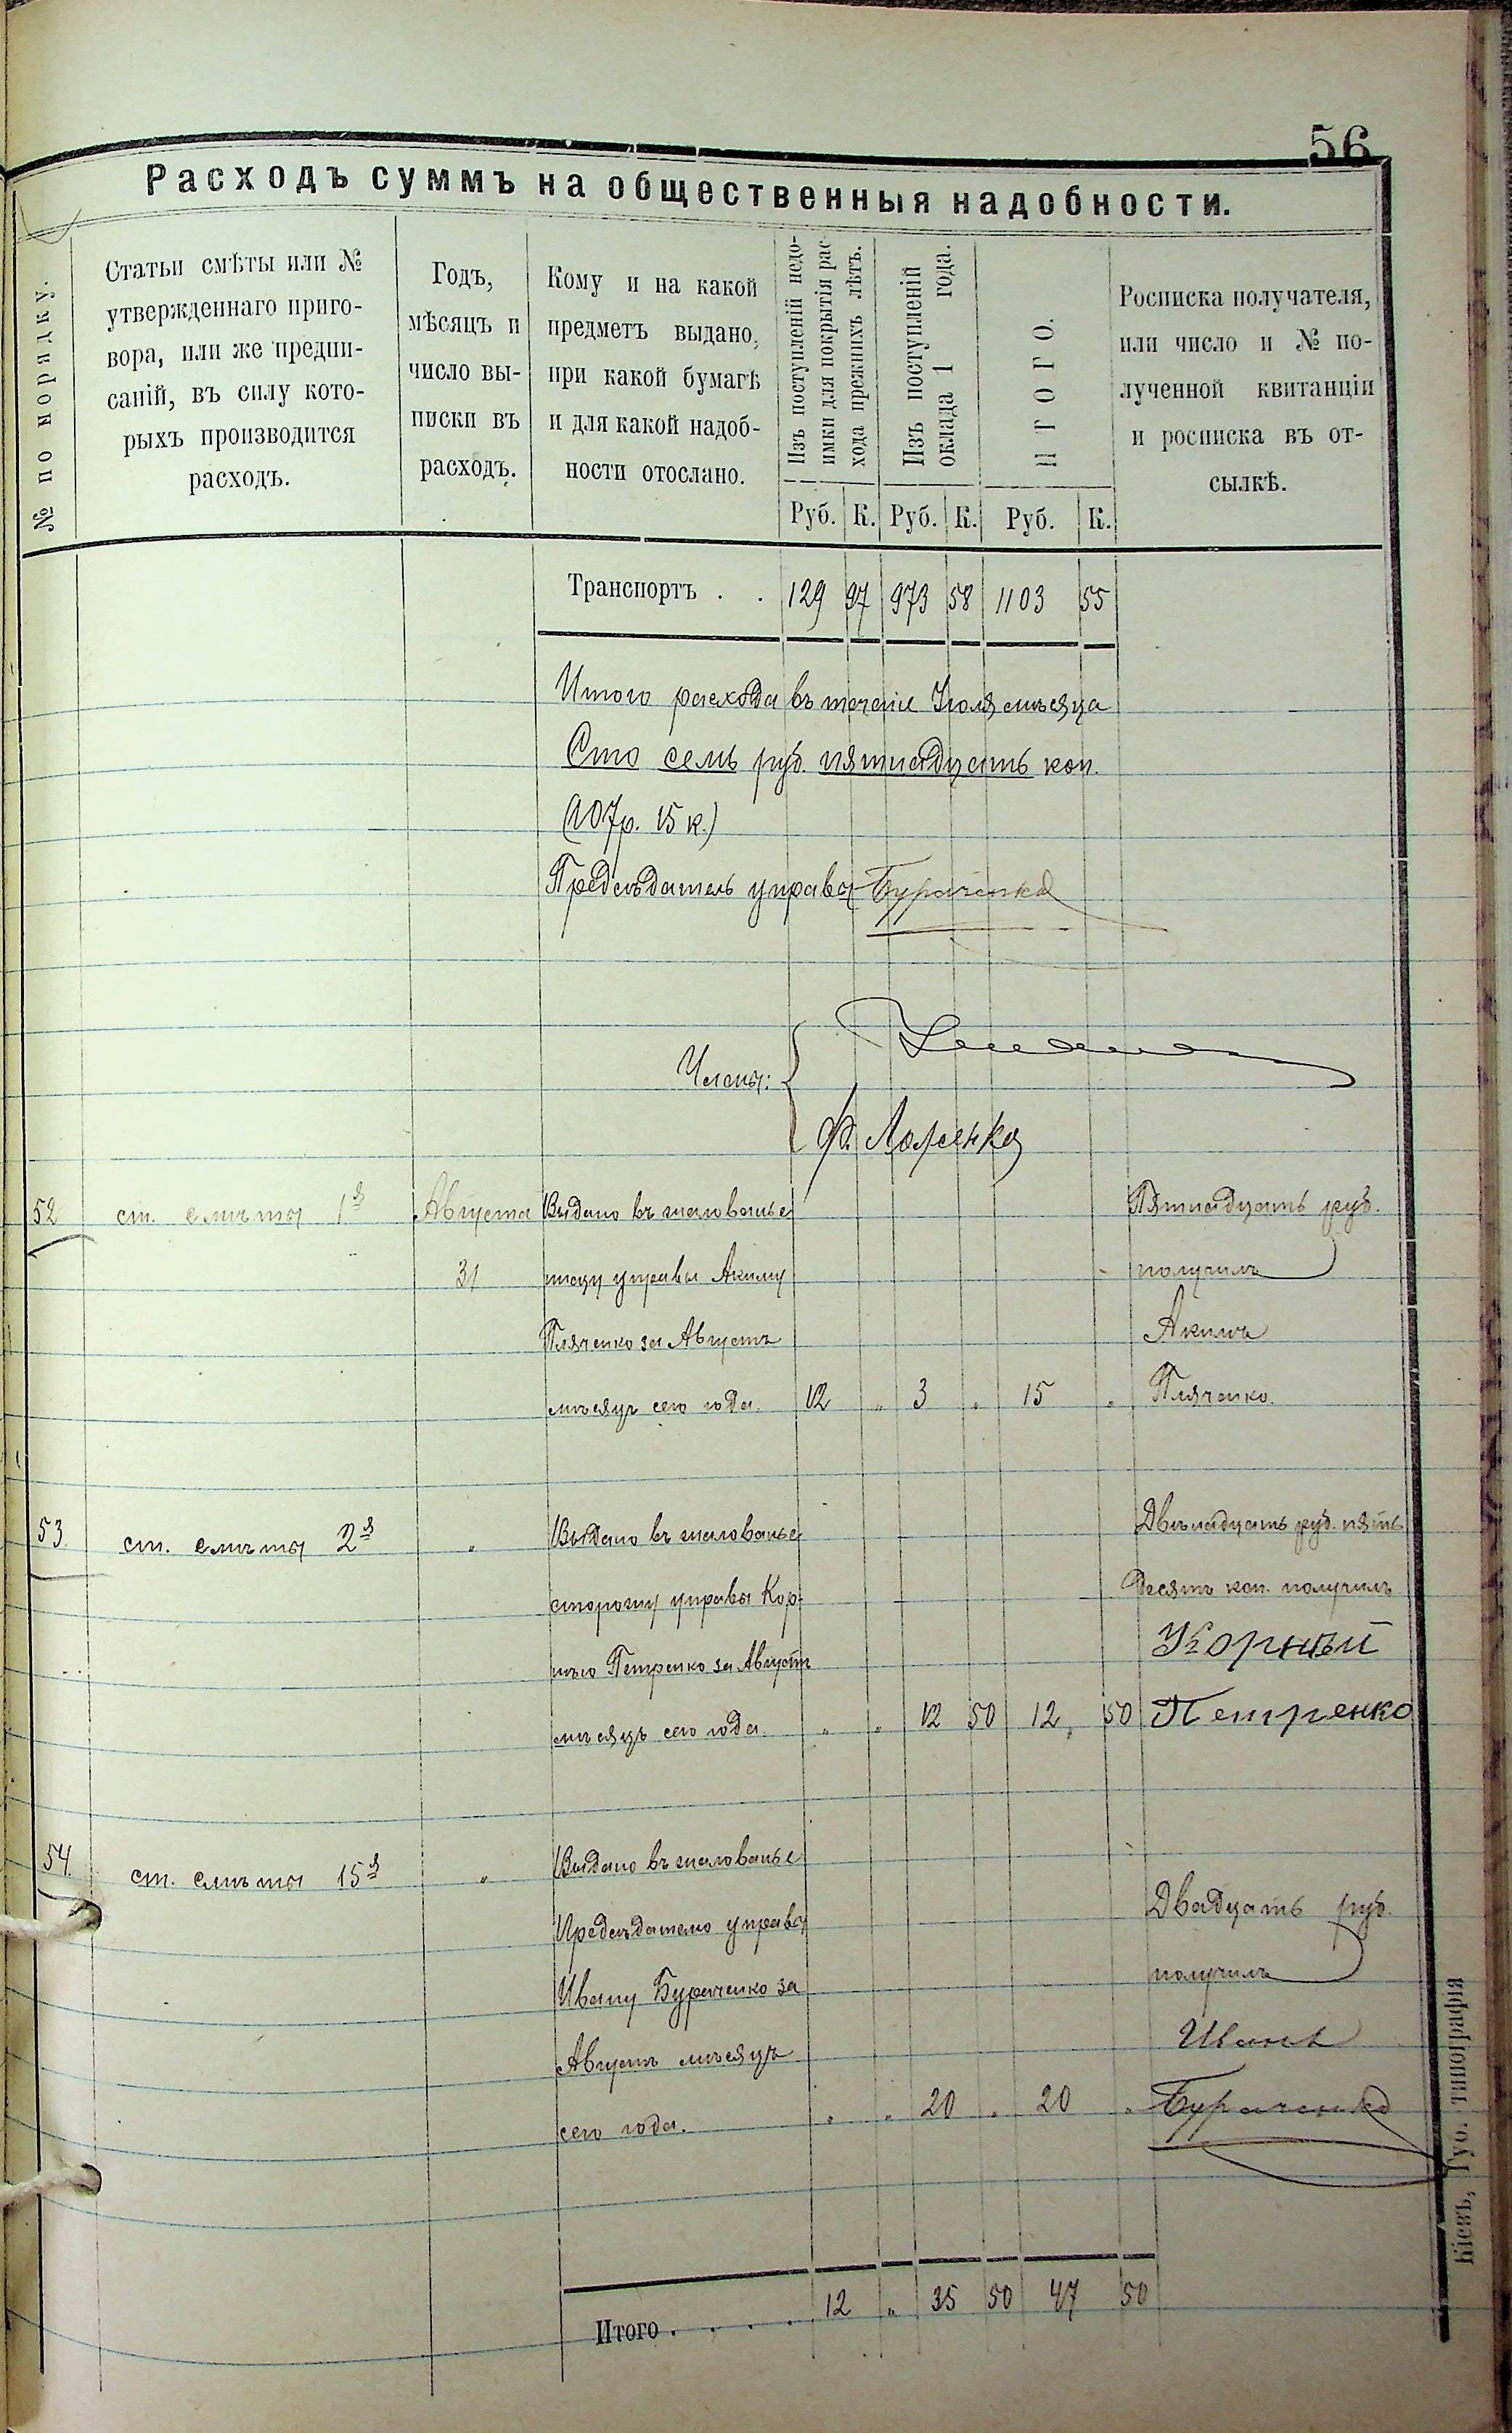 56
Расходъ суммъ на общественныя надобности.
№ по порядку.
Статьи смѣты или №
утвержденнаго приго-
вора, или же предпи-
саній, въ силу кото-
рыхъ производится
расходъ.
Годъ,
мѣсяцъ и
число вы-
писки въ
расходъ.
Кому и на какой
предметъ выдано,
при какой бумагѣ
и для какой надоб-
ности отослано.
Изъ поступленій недо-
имки для покрытія рас-
хода прежнихъ лѣтъ.
Изъ поступленій
оклада 1 года.
ИТОГО.
Росписка получателя,
или число и № по-
лученной квитанціи
и росписка въ от-
сылкѣ.
Руб. К. Руб. К. Руб. К.
Транспортъ . . 129 97 973 58 1103 55
Итого расхода въ теченіе Іюля мѣсяца
Сто семь руб. пятнадцать коп.
(107р. 15 к.)
Предсѣдатель управы Бураченко
Члены:
Ф. Ложенко
52 ст. смѣты 1я Августа Выдано въ жалованье Пятнадцать руб.
31 писцу управы Акиму получилъ
Пляченко за Августъ Акимъ
мѣсяцъ сего года. 12 „ 3 „ 15 „ Пляченко.
53. ст. смѣты 2я „ Выдано въ жалованье Двѣнадцать руб. пять
сторожу управы Кор- десятъ коп. получилъ
нѣю Петренко за Августъ Корнѣй
мѣсяцъ сего года. „ „ 12 50 12 50 Петренко
54. ст. смѣты 15я „ Выдано въ жалованье
Предсѣдателю управы Двадцать руб.
Ивану Бураченко за получилъ
Августъ мѣсяцъ Иванъ
сего года. „ „ 20 „ 20 „ Бураченко
Итого . . . . 12 „ 35 50 47 50
Кіевъ, Губ. типографія